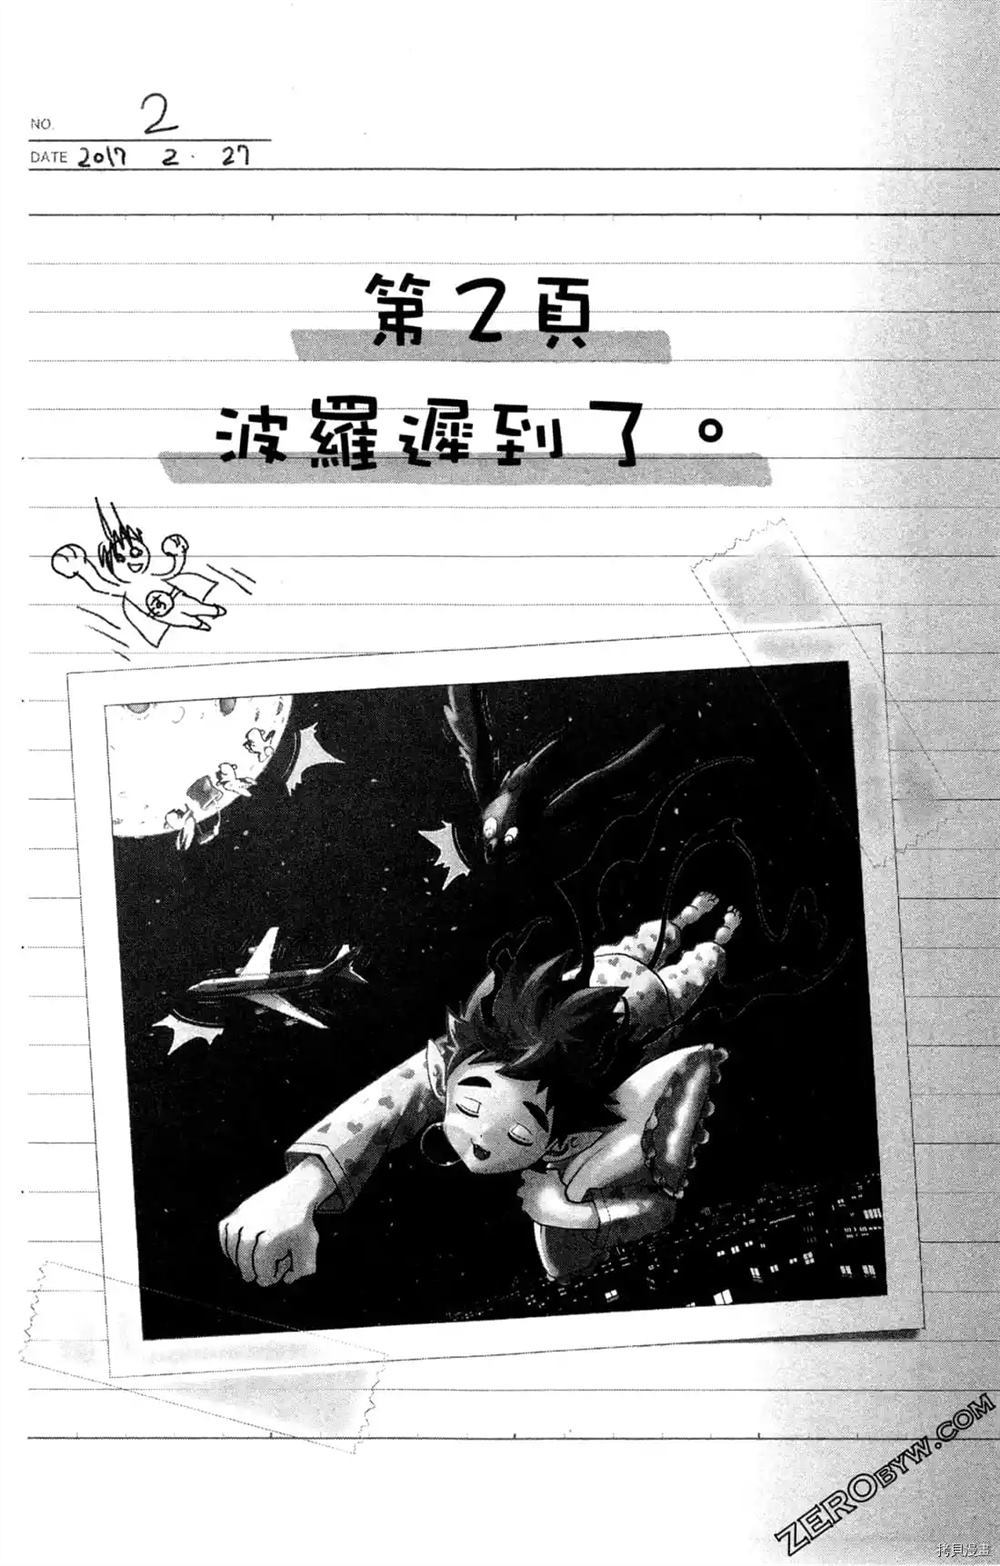 NO. 2
DATE 2017 2. 27
第2頁
波羅遲到了。
あ
ZEROBYW.COM
拷貝漫畫